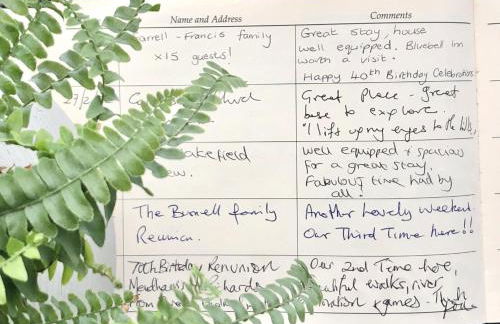 Name and Address
Comments
- Francis family
x15 guests!
Great stay, house
well equipped. Bluebell Inn
worth a visit.
Happy 40th Birthday Celebrations
27/2
Great Place - great
base to explore.
"I lift up my eyes to the hills,
Wakefield
well equipped + spacious
for a great stay.
Fabulous time had by
all.
The Burnell family
Reunion.
Another Lovely Weekend
Our Third Time here!!
70th Birthday Renunion
Our 2nd Time here,
walks, river,
games - Thank you